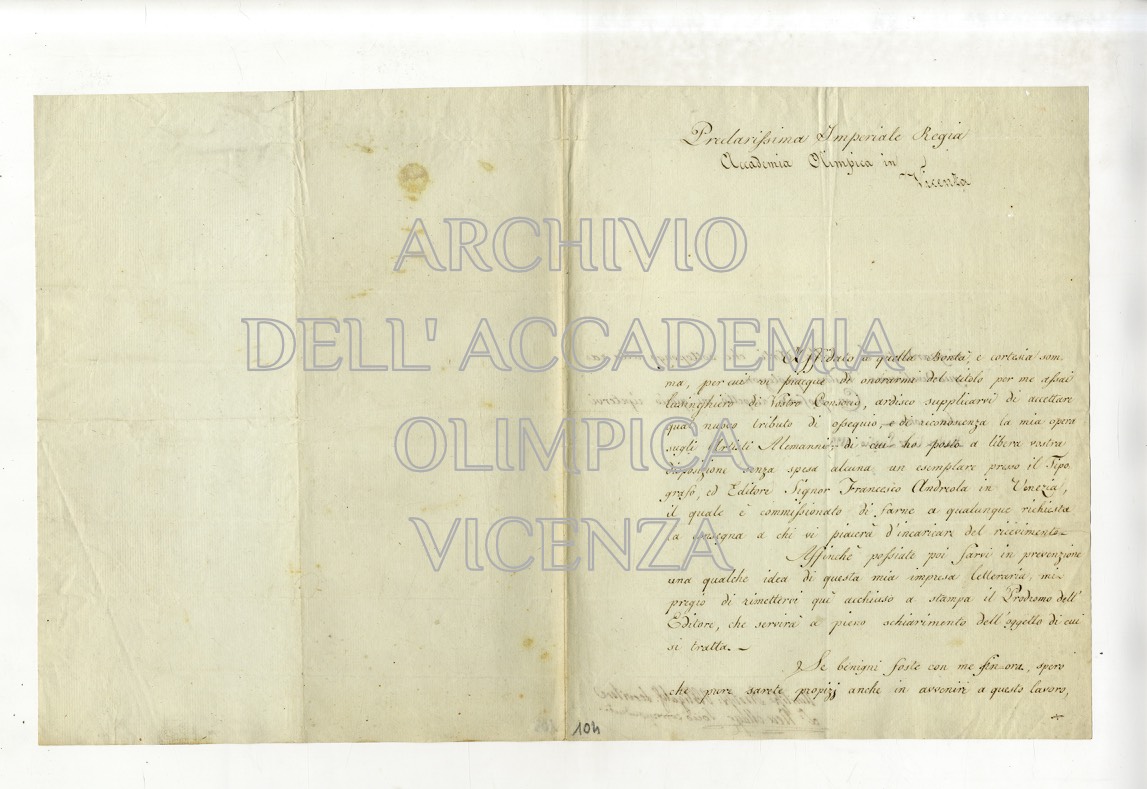 Preclarissima Imperiale Regia
Accademia Olimpica in
Vicenza
ARCHIVIO
DELL' ACCADEMIA
OLIMPICA
VICENZA
Affidato a quella Bontà, e cortesia som-
ma, per cui vi piacque di onorarmi del titolo per me assai
lusinghiero di Vostro Consocio, ardisco supplicarvi di accettare
qual nuovo tributo di ossequio, e di riconoscenza la mia opera
sugli Artisti Alemanni, di cui ho posto a libera vostra
disposizione senza spesa alcuna un esemplare presso il Tipo-
grafo, ed Editore Signor Francesco Andreola in Venezia,
il quale è commissionato di farne a qualunque richiesta
la consegna a chi vi piacerà d'incaricare del ricevimento.
Affinchè possiate poi farvi in prevenzione
una qualche idea di questa mia impresa letteraria, mi
pregio di rimettervi quì acchiuso a stampa il Prodromo dell'
Editore, che servirà a pieno schiarimento dell'oggetto di cui
si tratta.
Se benigni foste con me fin-ora, spero
che pure sarete propizj anche in avvenire a questo lavoro,
104